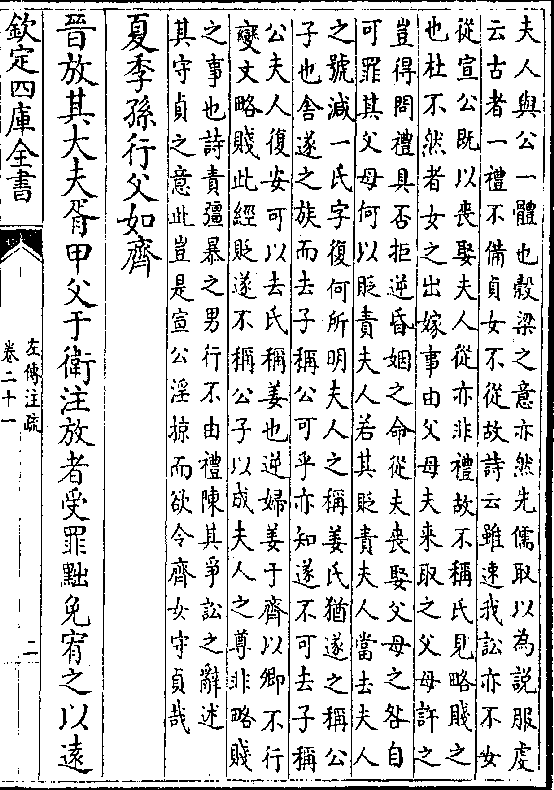 夫人與公一體也穀梁之意亦然先儒取以為說服虔
云古者一禮不備貞女不從故詩云雖速我訟亦不女
從宣公既以喪娶夫人從亦非禮故不稱氏見略賤之
也杜不然者女之出嫁事由父母夫來取之父母許之
豈得問禮具否拒逆昏姻之命從夫喪娶父母之咎自
可罪其父母何以貶責夫人若其貶責夫人當去夫人
之號減一氏字復何所明夫人之稱姜氏猶遂之稱公
子也舍遂之族而去子稱公可乎亦知遂不可去子稱
公夫人復安可以去氏稱姜也逆婦姜于齊以卿不行
變文略賤此經貶遂不稱公子以成夫人之尊非略賤
之事也詩責彊暴之男行不由禮陳其爭訟之辭述
其守貞之意此豈是宣公淫掠而欲令齊女守貞哉
夏季孫行父如齊
晉放其大夫胥甲父于衛注放者受罪黜免宥之以遠
欽定四庫全書
左傳注疏
卷二十一
二